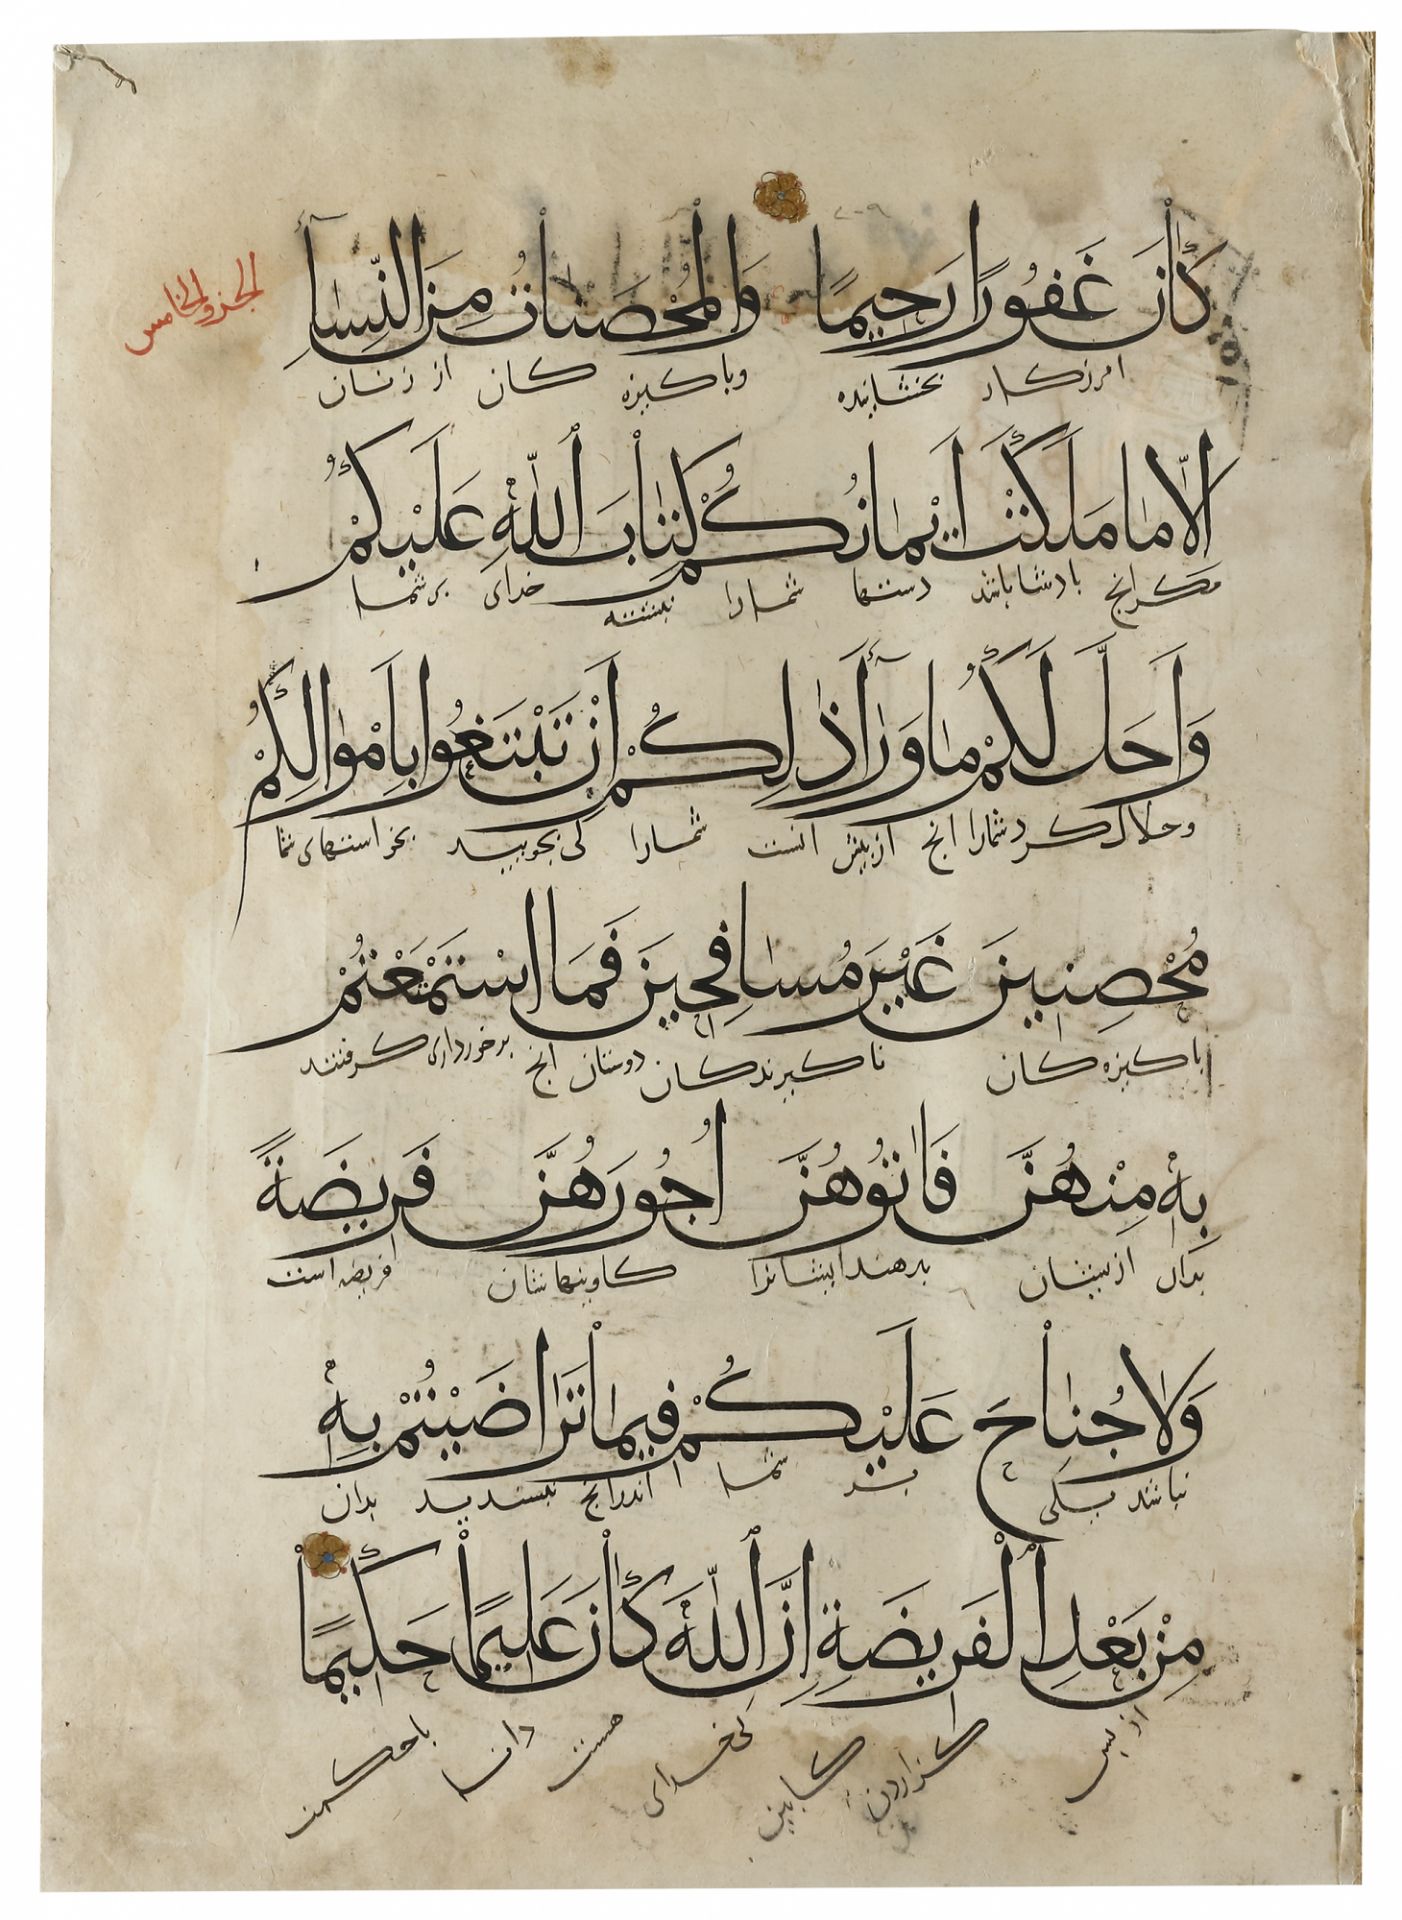 كَانَ غَفُورًا رَحِيمًا وَالْمُحْصَنَاتُ مِنَ النِّسَآءِ
الجزو الخامس
امرزكار بخشاينده وباكيزه كان از زنان
اِلَّا مَا مَلَكَتْ اَيْمَانُكُمْ كِتَابَ اللّٰهِ عَلَيْكُمْ
مكر انج بادشا باشد دستها شمارا نبشته خداى بر شما
وَاُحِلَّ لَكُمْ مَا وَرَآءَ ذٰلِكُمْ اَنْ تَبْتَغُوا بِاَمْوَالِكُمْ
وحلال كرد شمارا انج از بيش انست شمارا كى بجوييد بخواستهاى شما
مُحْصِنِينَ غَيْرَ مُسَافِحِينَ فَمَا اسْتَمْتَعْتُمْ
باكيزه كان نا كيرندكان دوستان انج برخوردارى كرفتند
بِهٖ مِنْهُنَّ فَاٰتُوهُنَّ اُجُورَهُنَّ فَرِيضَةً
بدان ازيشان بدهند ايشانرا كاوينهاشان فريضه است
وَلَا جُنَاحَ عَلَيْكُمْ فِيمَا تَرَاضَيْتُمْ بِهٖ
نباشد بر شما اندر انج بسنديد بدان
مِنْ بَعْدِ الْفَرِيضَةِ اِنَّ اللّٰهَ كَانَ عَلِيمًا حَكِيمًا
از بس كزاردن كابين كى خداى هست دانا باحكمت